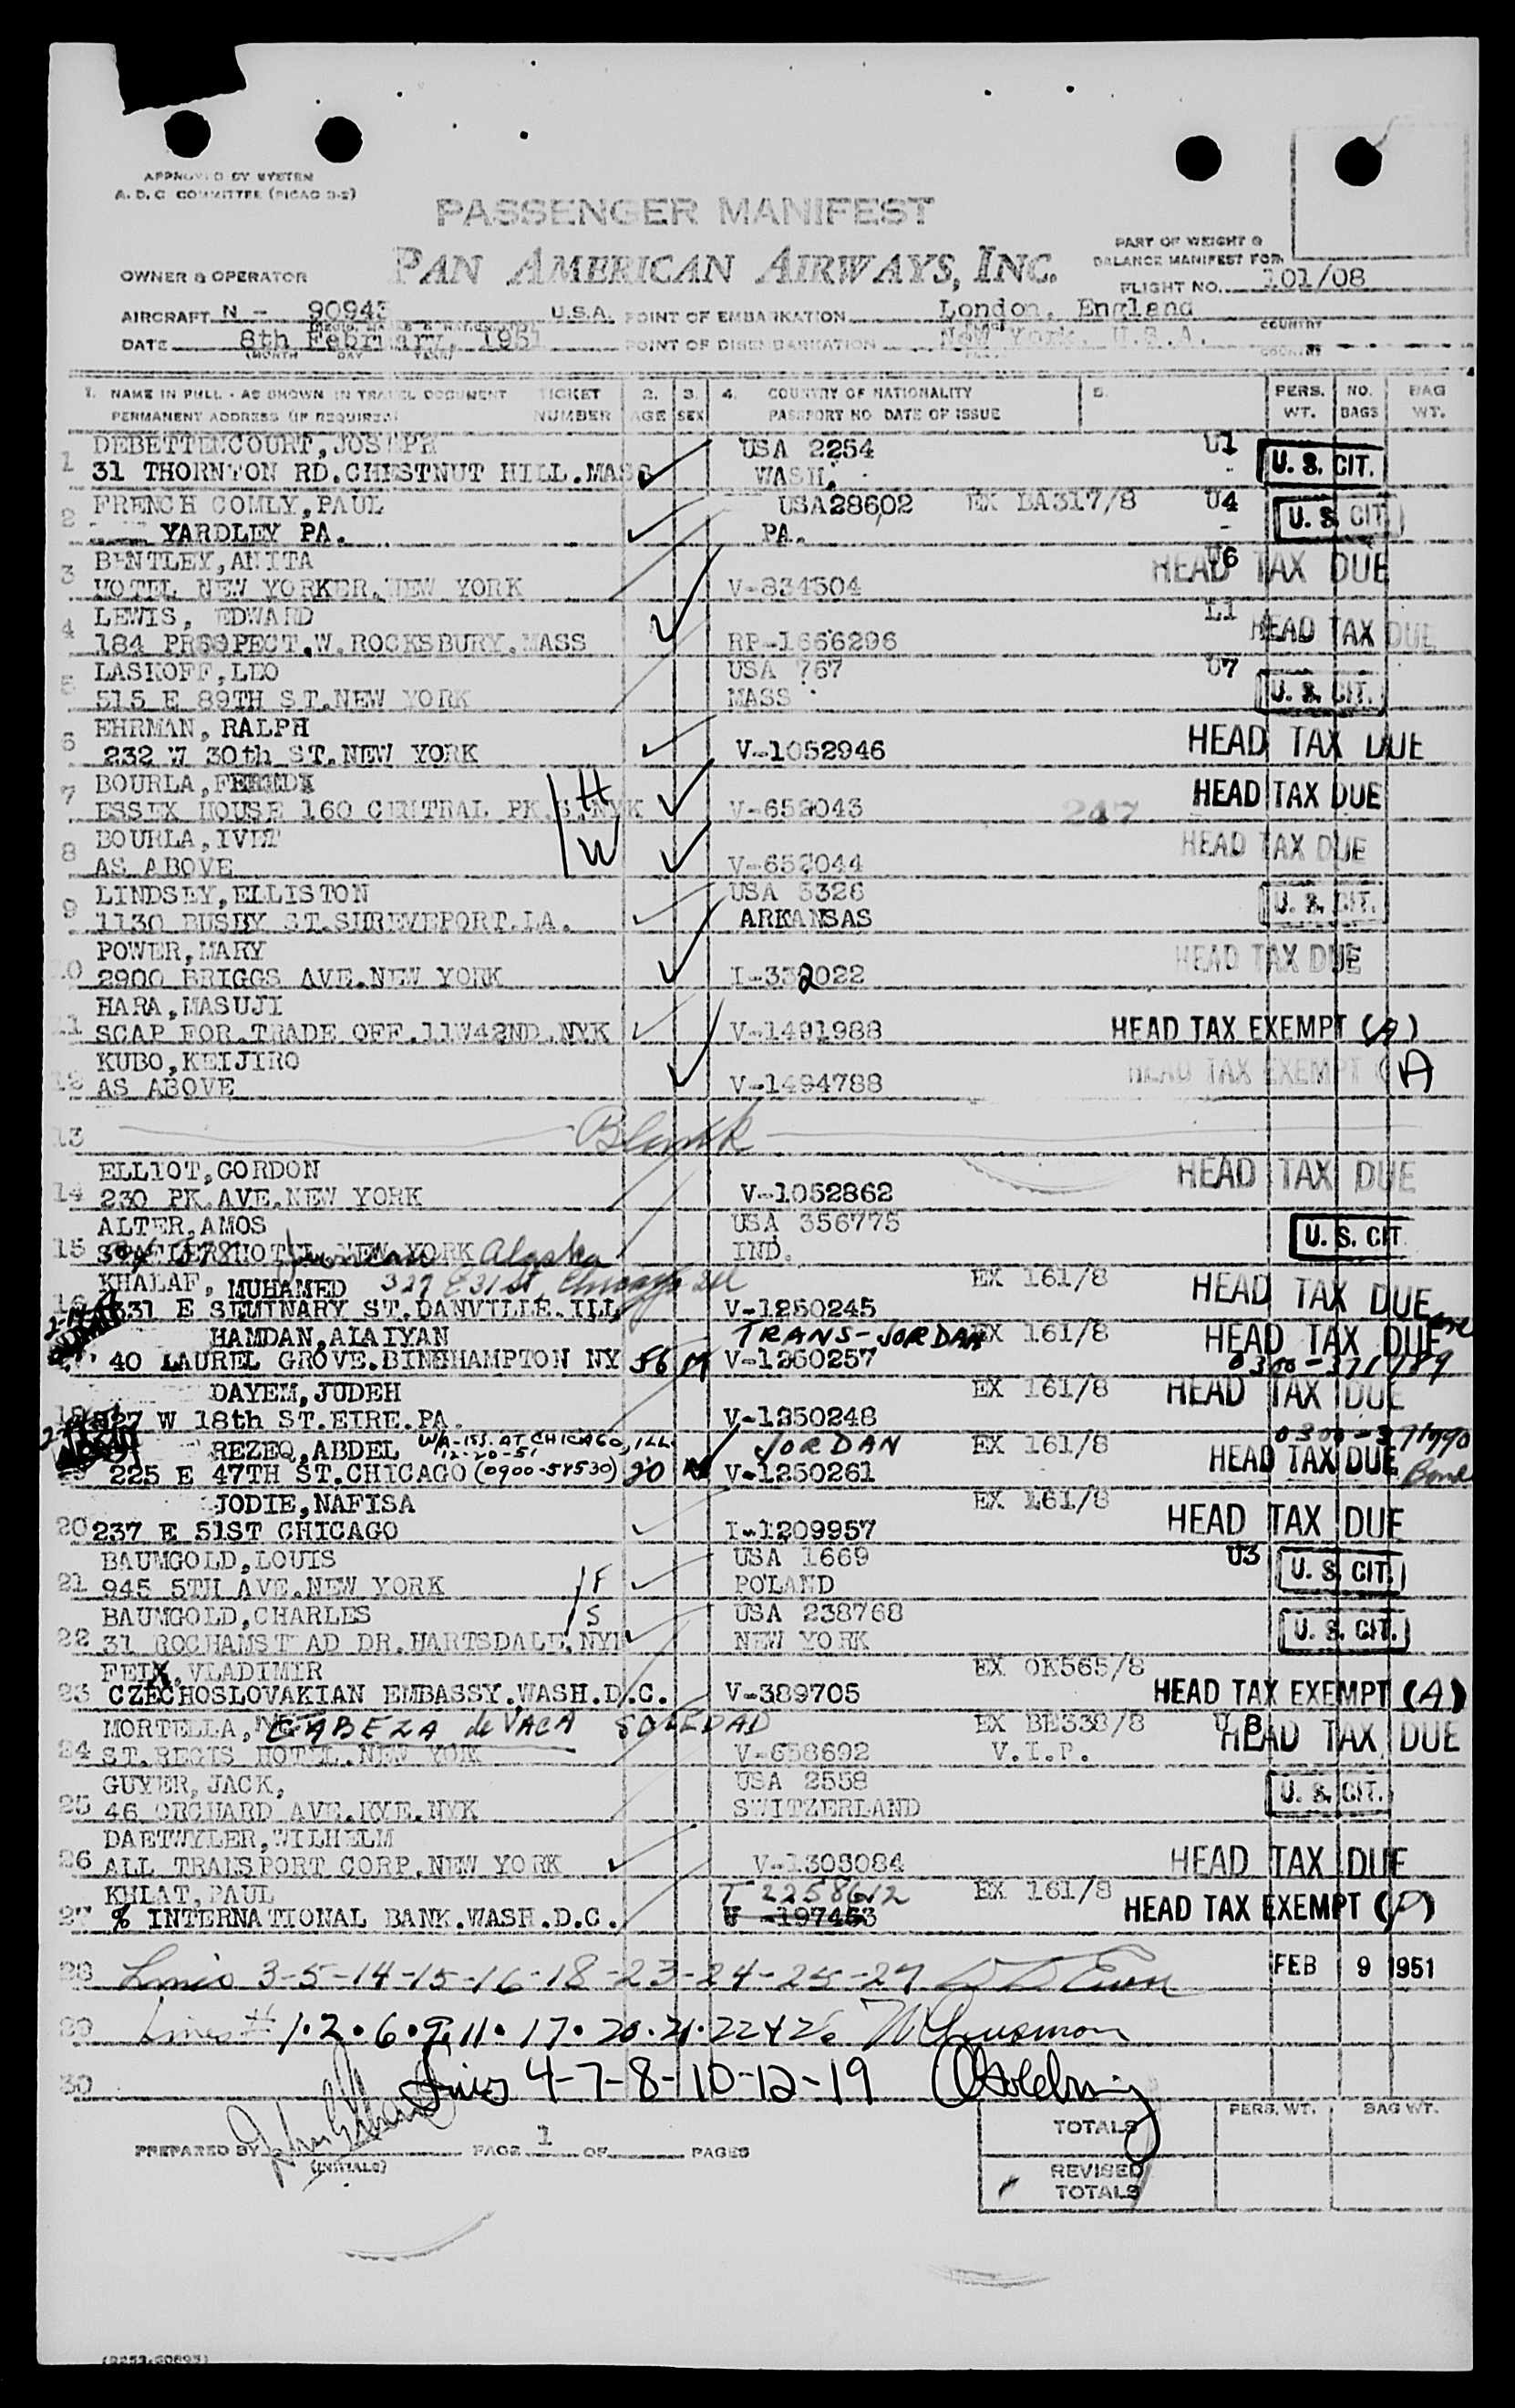 APPROVED BY SYSTEM
A. D. C. COMMITTEE (PICAO 3-2)
PASSENGER MANIFEST
OWNER & OPERATOR PAN AMERICAN AIRWAYS, INC.
PART OF WEIGHT &
BALANCE MANIFEST FOR
FLIGHT NO. 101/08
AIRCRAFT N - 90943 U.S.A. POINT OF EMBARKATION London, England
COUNTRY
DATE 8th February, 1951 POINT OF DISEMBARKATION New York, U.S.A.
(MONTH DAY YEAR) COUNTRY
1. NAME IN FULL - AS SHOWN IN TRAVEL DOCUMENT TICKET 2. 3. 4. COUNTRY OF NATIONALITY 5. PERS. NO. BAG
PERMANENT ADDRESS (IF REQUIRED) NUMBER AGE SEX PASSPORT NO. DATE OF ISSUE WT. BAGS WT.
DEBETTENCOURT, JOSEPH USA 2254 U1
1 31 THORNTON RD. CHESTNUT HILL. MASS WASH. - U. S. CIT.
FRENCH COMLY, PAUL USA28602 EX BA317/8 U4
2 YARDLEY PA. PA. - U. S. CIT.
BENTLEY, ANITA U6
3 HOTEL NEW YORKER. NEW YORK V-834504 HEAD TAX DUE
LEWIS, EDWARD L1
4 184 PROSPECT. W. ROCKSBURY. MASS RP-1666296 HEAD TAX DUE
LASKOFF, LEO USA 767 U7
5 515 E 89TH ST. NEW YORK MASS U. S. CIT.
EHRMAN, RALPH
6 232 W 30th ST. NEW YORK V-1052946 HEAD TAX DUE
BOURLA, H
7 ESSEX HOUSE 160 CENTRAL PK. S. NYK V-652043 247 HEAD TAX DUE
BOURLA, IVET W
8 AS ABOVE V-652044 HEAD TAX DUE
LINDSEY, ELLISTON USA 5326
9 1130 BUSBY ST. SHREVEPORT. LA. ARKANSAS U. S. CIT.
POWER, MARY
10 2900 BRIGGS AVE. NEW YORK I-332022 HEAD TAX DUE
HARA, MASUJI
11 SCAP FOR. TRADE OFF. 11W42ND. NYK V-1491988 HEAD TAX EXEMPT (A)
KUBO, KEIJIRO
12 AS ABOVE V-1494788 HEAD TAX EXEMPT (A
13 Blank
ELLIOT, GORDON
14 230 PK. AVE. NEW YORK V-1052862 HEAD TAX DUE
ALTER, AMOS USA 356775
15 NEW YORK Alaska IND. U. S. CIT.
KHALAF, MUHAMED 327 E 31 St. Chicago Ill EX 161/8
16 331 E SEMINARY ST. DANVILLE. ILL V-1250245 HEAD TAX DUE
HAMDAN, ALAIYAN TRANS-JORDAN EX 161/8 HEAD TAX DUE
40 LAUREL GROVE. BINGHAMPTON NY 56 M V-1250257 0300-371789
DAYEM, JUDEH EX 161/8
18 827 W 18th ST. EIRE. PA. V-1250248 HEAD TAX DUE
REZEQ, ABDEL W/A-ISS. AT CHICAGO, ILL. 12-20-51 JORDAN EX 161/8 0300-371790
225 E 47TH ST. CHICAGO (0900-58530) 20 M V-1250261 HEAD TAX DUE Bond
JODIE, NAFISA EX 161/8
20 237 E 51ST CHICAGO I-1209957 HEAD TAX DUE
BAUMGOLD, LOUIS USA 1669 U3
21 945 5TH AVE. NEW YORK F POLAND U. S. CIT.
BAUMGOLD, CHARLES S USA 238768
22 31 ROCHAMSTEAD DR. HARTSDALE. NYK NEW YORK U. S. CIT.
FEIX, VLADIMIR EX OK565/8
23 CZECHOSLOVAKIAN EMBASSY. WASH. D.C. V-389705 HEAD TAX EXEMPT (A)
MORTELLA, CABEZA de VACA SOLEDAD EX BE338/8 U B
24 ST. REGIS HOTEL. NEW YORK V-658692 V.I.P. HEAD TAX DUE
GUYER, JACK, USA 2558
25 46 ORCHARD AVE. RYE. NYK SWITZERLAND U. S. CIT.
DAETWYLER, WILHELM
26 ALL TRANSPORT CORP. NEW YORK V-1305084 HEAD TAX DUE
KHLAT, PAUL T 2258612 EX 161/8
27 % INTERNATIONAL BANK. WASH. D.C. V -197453 HEAD TAX EXEMPT (D)
28 Lines 3-5-14-15-16-18-23-24-25-27 FEB 9 1951
29 Lines # 1·2·6·9·11·17·20·21·22 & 26
30 Lines 4-7-8-10-12-19
PREPARED BY PAGE 1 OF PAGES
(INITIALS)
TOTALS PERS. WT. BAG WT.
REVISED
TOTALS